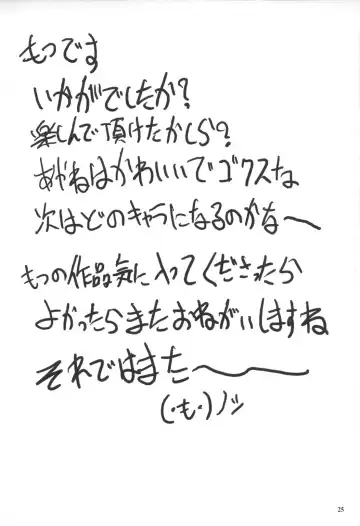 もつです
いかがでしたか?
楽しんで頂けたかしら?
あかねはかわいいでゴクスな
次はどのキャラになるのかな〜
もつの作品気に入ってくださったら
よかったらまたおねがいしますね
それではまた〜
(・も・)ノシ
25